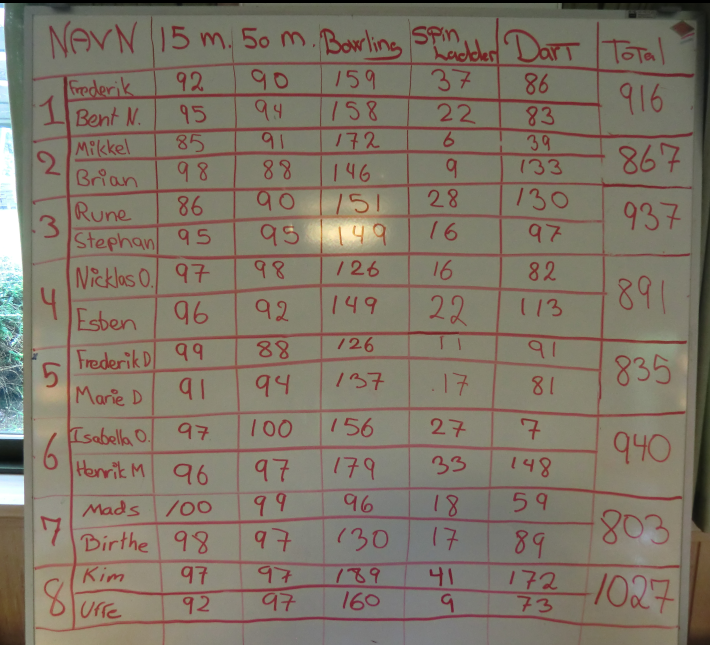 NAVN 15 m. 50 m. Bowling Spin Ladder Dart Total
1 Frederik 92 90 159 37 86 916
Bent N. 95 94 158 22 83
2 Mikkel 85 91 172 6 39 867
Brian 98 88 146 9 133
3 Rune 86 90 151 28 130 937
Stephan 95 95 149 16 97
4 Nicklas O. 97 98 126 16 82 891
Esben 96 92 149 22 113
5 Frederik D 99 88 126 11 91 835
Marie D 91 94 137 17 81
6 Isabella O. 97 100 156 27 7 940
Henrik M 96 97 179 33 148
7 Mads 100 99 96 18 59 803
Birthe 98 97 130 17 89
8 Kim 97 97 189 41 172 1027
Uffe 92 97 160 9 73